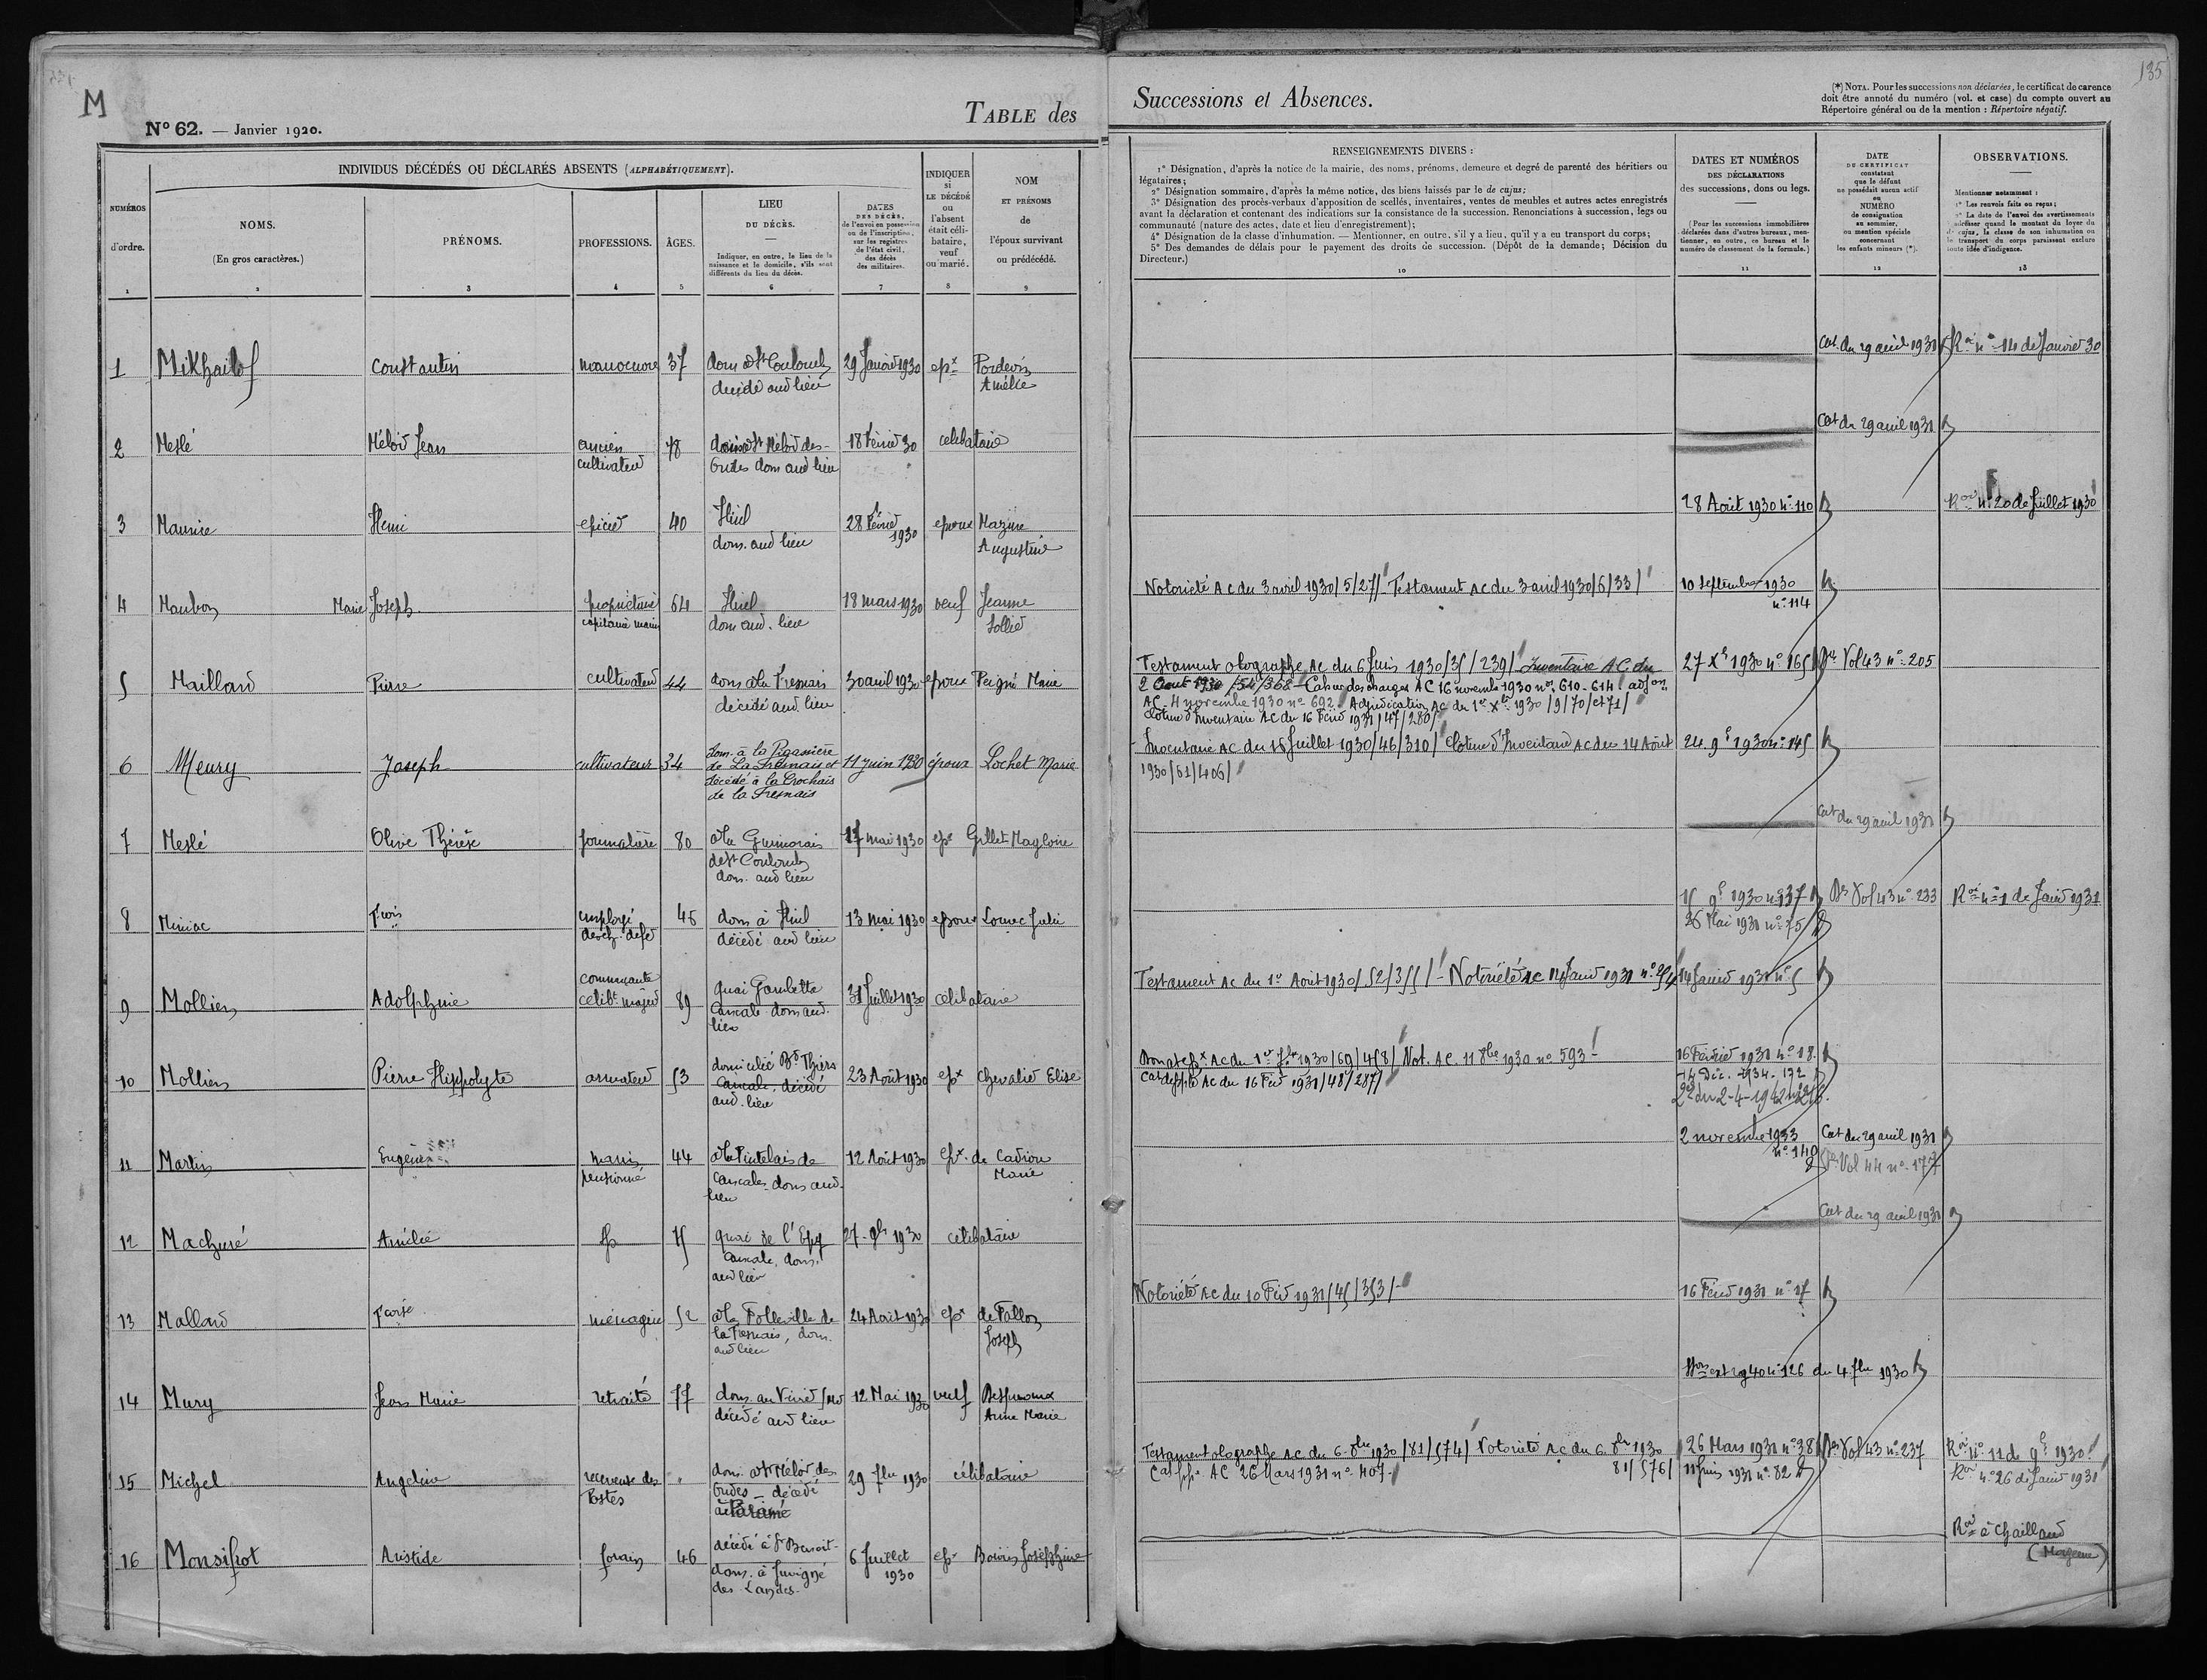 M
135
N° 62. — Janvier 1920.
TABLE des
Successions et Absences.
(*) NOTA. Pour les successions non déclarées, le certificat de carence
doit être annoté du numéro (vol. et case) du compte ouvert au
Répertoire général ou de la mention : Répertoire négatif.
NUMÉROS
d'ordre.
1
INDIVIDUS DÉCÉDÉS OU DÉCLARÉS ABSENTS (ALPHABÉTIQUEMENT).
NOMS.
(En gros caractères.)
2
PRÉNOMS.
3
PROFESSIONS.
4
ÂGES.
5
LIEU
DU DÉCÈS.
Indiquer, en outre, le lieu de la
naissance et le domicile, s'ils sont
différents du lieu du décès.
6
DATES
DES DÉCÈS,
de l'envoi en possession
ou de l'inscription,
sur les registres
de l'état civil,
des décès
des militaires.
7
INDIQUER
si
LE DÉCÉDÉ
ou
l'absent
était céli-
bataire,
veuf
ou marié.
8
NOM
ET PRÉNOMS
de
l'époux survivant
ou prédécédé.
9
RENSEIGNEMENTS DIVERS :
1° Désignation, d'après la notice de la mairie, des noms, prénoms, demeure et degré de parenté des héritiers ou
légataires;
2° Désignation sommaire, d'après la même notice, des biens laissés par le de cujus;
3° Désignation des procès-verbaux d'apposition de scellés, inventaires, ventes de meubles et autres actes enregistrés
avant la déclaration et contenant des indications sur la consistance de la succession. Renonciations à succession, legs ou
communauté (nature des actes, date et lieu d'enregistrement);
4° Désignation de la classe d'inhumation. — Mentionner, en outre, s'il y a lieu, qu'il y a eu transport du corps;
5° Des demandes de délais pour le payement des droits de succession. (Dépôt de la demande; Décision du
Directeur.)
10
DATES ET NUMÉROS
DES DÉCLARATIONS
des successions, dons ou legs.
(Pour les successions immobilières
déclarées dans d'autres bureaux, men-
tionner, en outre, ce bureau et le
numéro de classement de la formule.)
11
DATE
DU CERTIFICAT
constatant
que le défunt
ne possédait aucun actif
ou
NUMÉRO
de consignation
au sommier,
ou mention spéciale
concernant
les enfants mineurs (*).
12
OBSERVATIONS.
Mentionner notamment :
1° Les renvois faits ou reçus;
2° La date de l'envoi des avertissements
à adresser quand le montant du loyer du
de cujus, la classe de son inhumation ou
le transport du corps paraissent exclure
toute idée d'indigence.
13
1 Mikhailof Constantin manoeuvre 37 dom à St Coulomb 29 Janvier 1930 epx Pordevin
décédé aud lieu Amélie
Cat. du 29 avril 1931 Roi n° 14 de Janvier 30
2 Meslé Méloir Jean ancien 78 domicilié St Méloir des 18 Février 30 celibataire
cultivateur Ondes dom aud lieu
Cat du 29 avril 1931
3 Maurice Henri epicier 40 Hirel 28 Février époux Mazure
dom. aud lieu 1930 Augustine
28 Août 1930 n° 110 Roi n° 20 de Juillet 1930
4 Maubon Marie Joseph propriétaire 64 Hirel 18 mars 1930 veuf Jeanne
capitaine marin dom aud. lieu Sollier
Notoriété AC du 3 avril 1930/5/27/ Testament AC du 3 avril 1930/6/33/ 10 septembre 1930
n° 114
5 Maillard Pierre cultivateur 44 dom à La Fresnais 30 avril 1930 époux Peigné Marie
décédé aud lieu
Testament olographe AC du 6 Juin 1930/35/239/ Inventaire AC du 27 Xbre 1930 n° 165 Vol 43 n° 205
2 Août 1930 /54/368 – Cahier des charges AC 16 novembre 1930 nos 610-614 – adjon
AC – 4 novembre 1930 n° 692. Adjudication AC du 1er Xbre 1930 /9/70/et 71/
Cloture d'Inventaire AC du 16 Février 1931/47/280/
6 Meury Joseph cultivateur 34 Dom. à la Pigassière 11 juin 1930 époux Lochet Marie
de La Fresnais et
décédé à la Crochais
de la Fresnais
Inventaire AC du 15 Juillet 1930/46/310/ Cloture d'Inventaire AC du 14 Août 24 9e 1930 n° 145
1930/61/406/
7 Meslé Olive Thérèse journalière 80 à la Guimorais 17 mai 1930 epe Gillet Magloire
de St Coulomb
dom. aud lieu
Cat du 29 avril 1931
8 Miniac Frois employé 45 dom à Hirel 13 mai 1930 époux Louvel Julie
des ch. de fer décédé aud lieu
15 9e 1930 n° 137 Vol 43 n° 233 Roi n° 1 de Janvier 1931
26 Mai 1931 n° 75
9 Mollien Adolphine commerçante 89 quai Gambetta 31 Juillet 1930 célibataire
célibt majeur Cancale dom aud.
lieu
Testament AC du 1er Août 1930/52/355/ – Notoriété AC 14 Janvier 1931 n° 254 14 Janvier 1931 n° 5
10 Mollien Pierre Hippolyte armateur 53 domicilié Bd Thiers 23 Août 1930 epx Chevalier Elise
Cancale, décédé
aud. lieu
Donat epx AC du 1er 7bre 1930/69/458/ Not. AC. 11 8bre 1930 n° 593 – 16 Février 1931 n° 18
AC du 16 Février 1931/48/287/ 14 Déc. 1934. 172
du 2-4-1942
11 Martin Eugène marin 44 à la Pintelais de 12 Août 1930 epx de Cadiou
pensionné Cancale – dom aud. Marie
lieu
2 novembre 1933 Cat du 29 avril 1931
n° 140 Vol 44 n° 177
12 Machuré Amélie 75 quai de l'Epi 27 1930 célibataire
Cancale, dom.
aud lieu
Cat du 29 avril 1931
13 Mallard Foise ménagère 52 à la Folleville de 24 Août 1930 epx de Fallon
la Fresnais, dom. Joseph
aud lieu
Notoriété AC du 10 Février 1931/45/353/ 16 Février 1931 n° 17
14 Mury Jean Marie retraité 77 dom. au Vivier s/mer 12 Mai 1930 veuf Despreaux
décédé aud lieu Anne Marie
n° 126 du 4 7bre 1930
15 Michel Angeline receveuse des dom. à St Méloir des 29 7bre 1930 célibataire
Postes Ondes – décédé
à Paramé
Testament olographe AC du 6 8bre 1930/81/574/ Notoriété AC du 6 8bre 1930 26 Mars 1931 n° 38 Vol 43 n° 237 Roi n° 11 de 9e 1930
AC 26 Mars 1931 n° 407 81/576/ 11 Juin 1931 n° 82 Roi n° 26 de Janvier 1931
16 Monsifrot Aristide forain 46 décédé à St Benoit 6 Juillet epx Bouvis Joséphine
dom. à Juvigné 1930
des Landes
Roi à Chailland
(Mayenne)